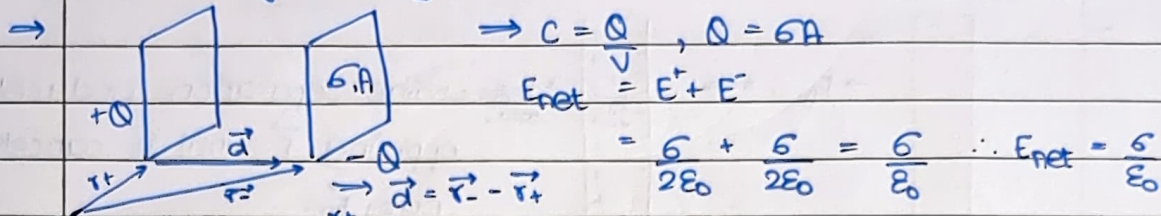 ⇒ +Q σ,A -Q
d⃗ r₊ r⃗₋
⇒ d⃗ = r⃗₋ - r⃗₊
⇒ C = Q/V , Q = σA
Enet = E⁺ + E⁻
= σ/2ε₀ + σ/2ε₀ = σ/ε₀ ∴ Enet = σ/ε₀